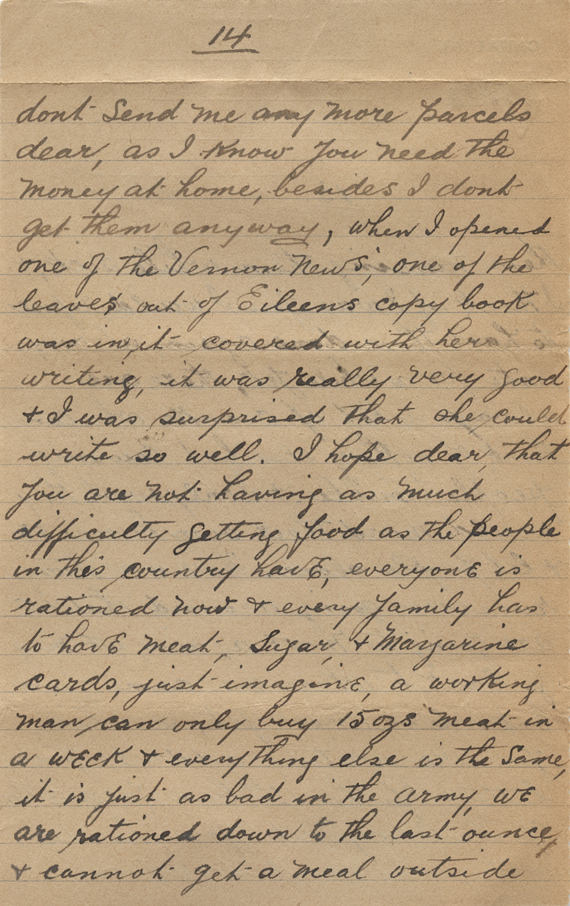 14
dont Send me any more parcels
dear, as I know you need the
money at home, besides I dont
get them anyway, when I opened
one of the Vernon News', one of the
leaves out of Eileens copy book
was in it covered with her
writing, it was really very good
& I was surprised that she could
write so well. I hope dear, that
you are not having as much
difficulty getting food as the people
in this country have, everyone is
rationed now & every family has
to have meat, Sugar, & Margarine
cards, just imagine, a working
man can only buy 15ozs meat in
a week & everything else is the same,
it is just as bad in the army, we
are rationed down to the last ounce,
& cannot get a meal outside